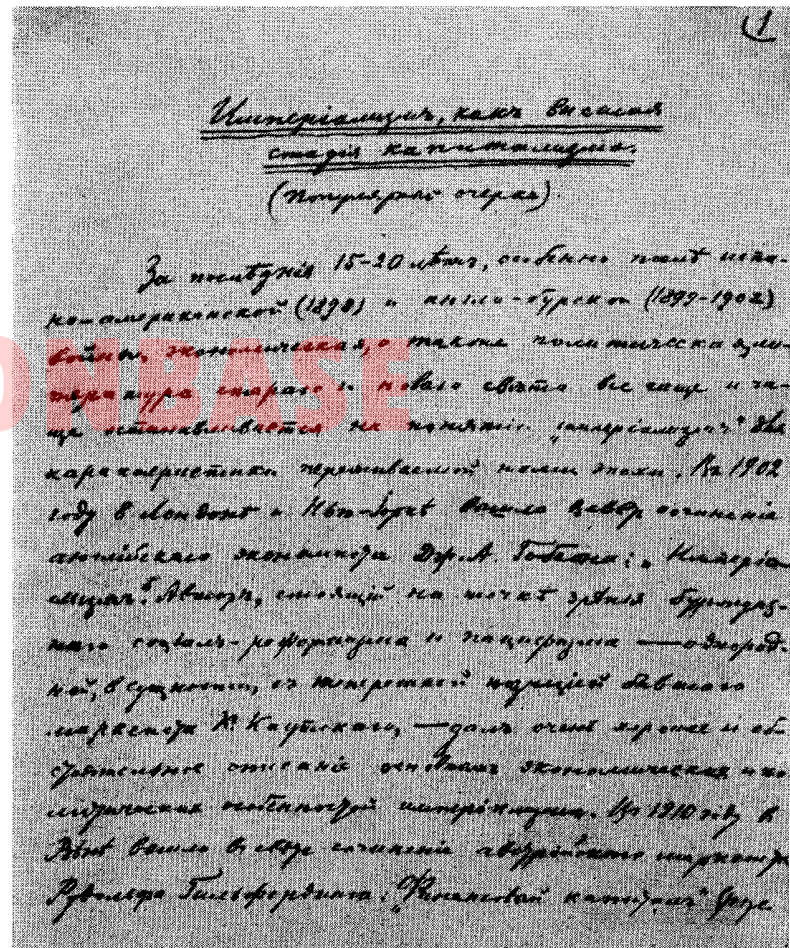 1
Имперіализмъ, какъ высшая
стадія капитализма.
(Популярный очеркъ).
За послѣднія 15–20 лѣтъ, особенно послѣ испа-
но-американской (1898) и англо-бурской (1899–1902)
войны, экономическая, а также политическая, ли-
тература стараго и новаго свѣта все чаще и ча-
ще останавливается на понятіи „имперіализмъ“ для
характеристики переживаемой нами эпохи. Въ 1902
году в Лондонѣ и Нью-Іоркѣ вышло сочиненіе
англійскаго экономиста Дж. А. Гобсона: „Имперіа-
лизмъ“. Авторъ, стоящій на точкѣ зрѣнія буржуаз-
наго соціалъ-реформизма и пацифизма — однород-
ной, в сущности, съ теперешней позиціей бывшаго
марксиста К. Каутскаго, — далъ очень хорошее и об-
стоятельное описаніе основныхъ экономическихъ и по-
литическихъ особенностей имперіализма. Въ 1910 году в
Вѣнѣ вышло в свѣт сочиненіе австрійскаго марксиста
Рудольфа Гильфердинга: „Финансовый капиталъ“
ONBASE